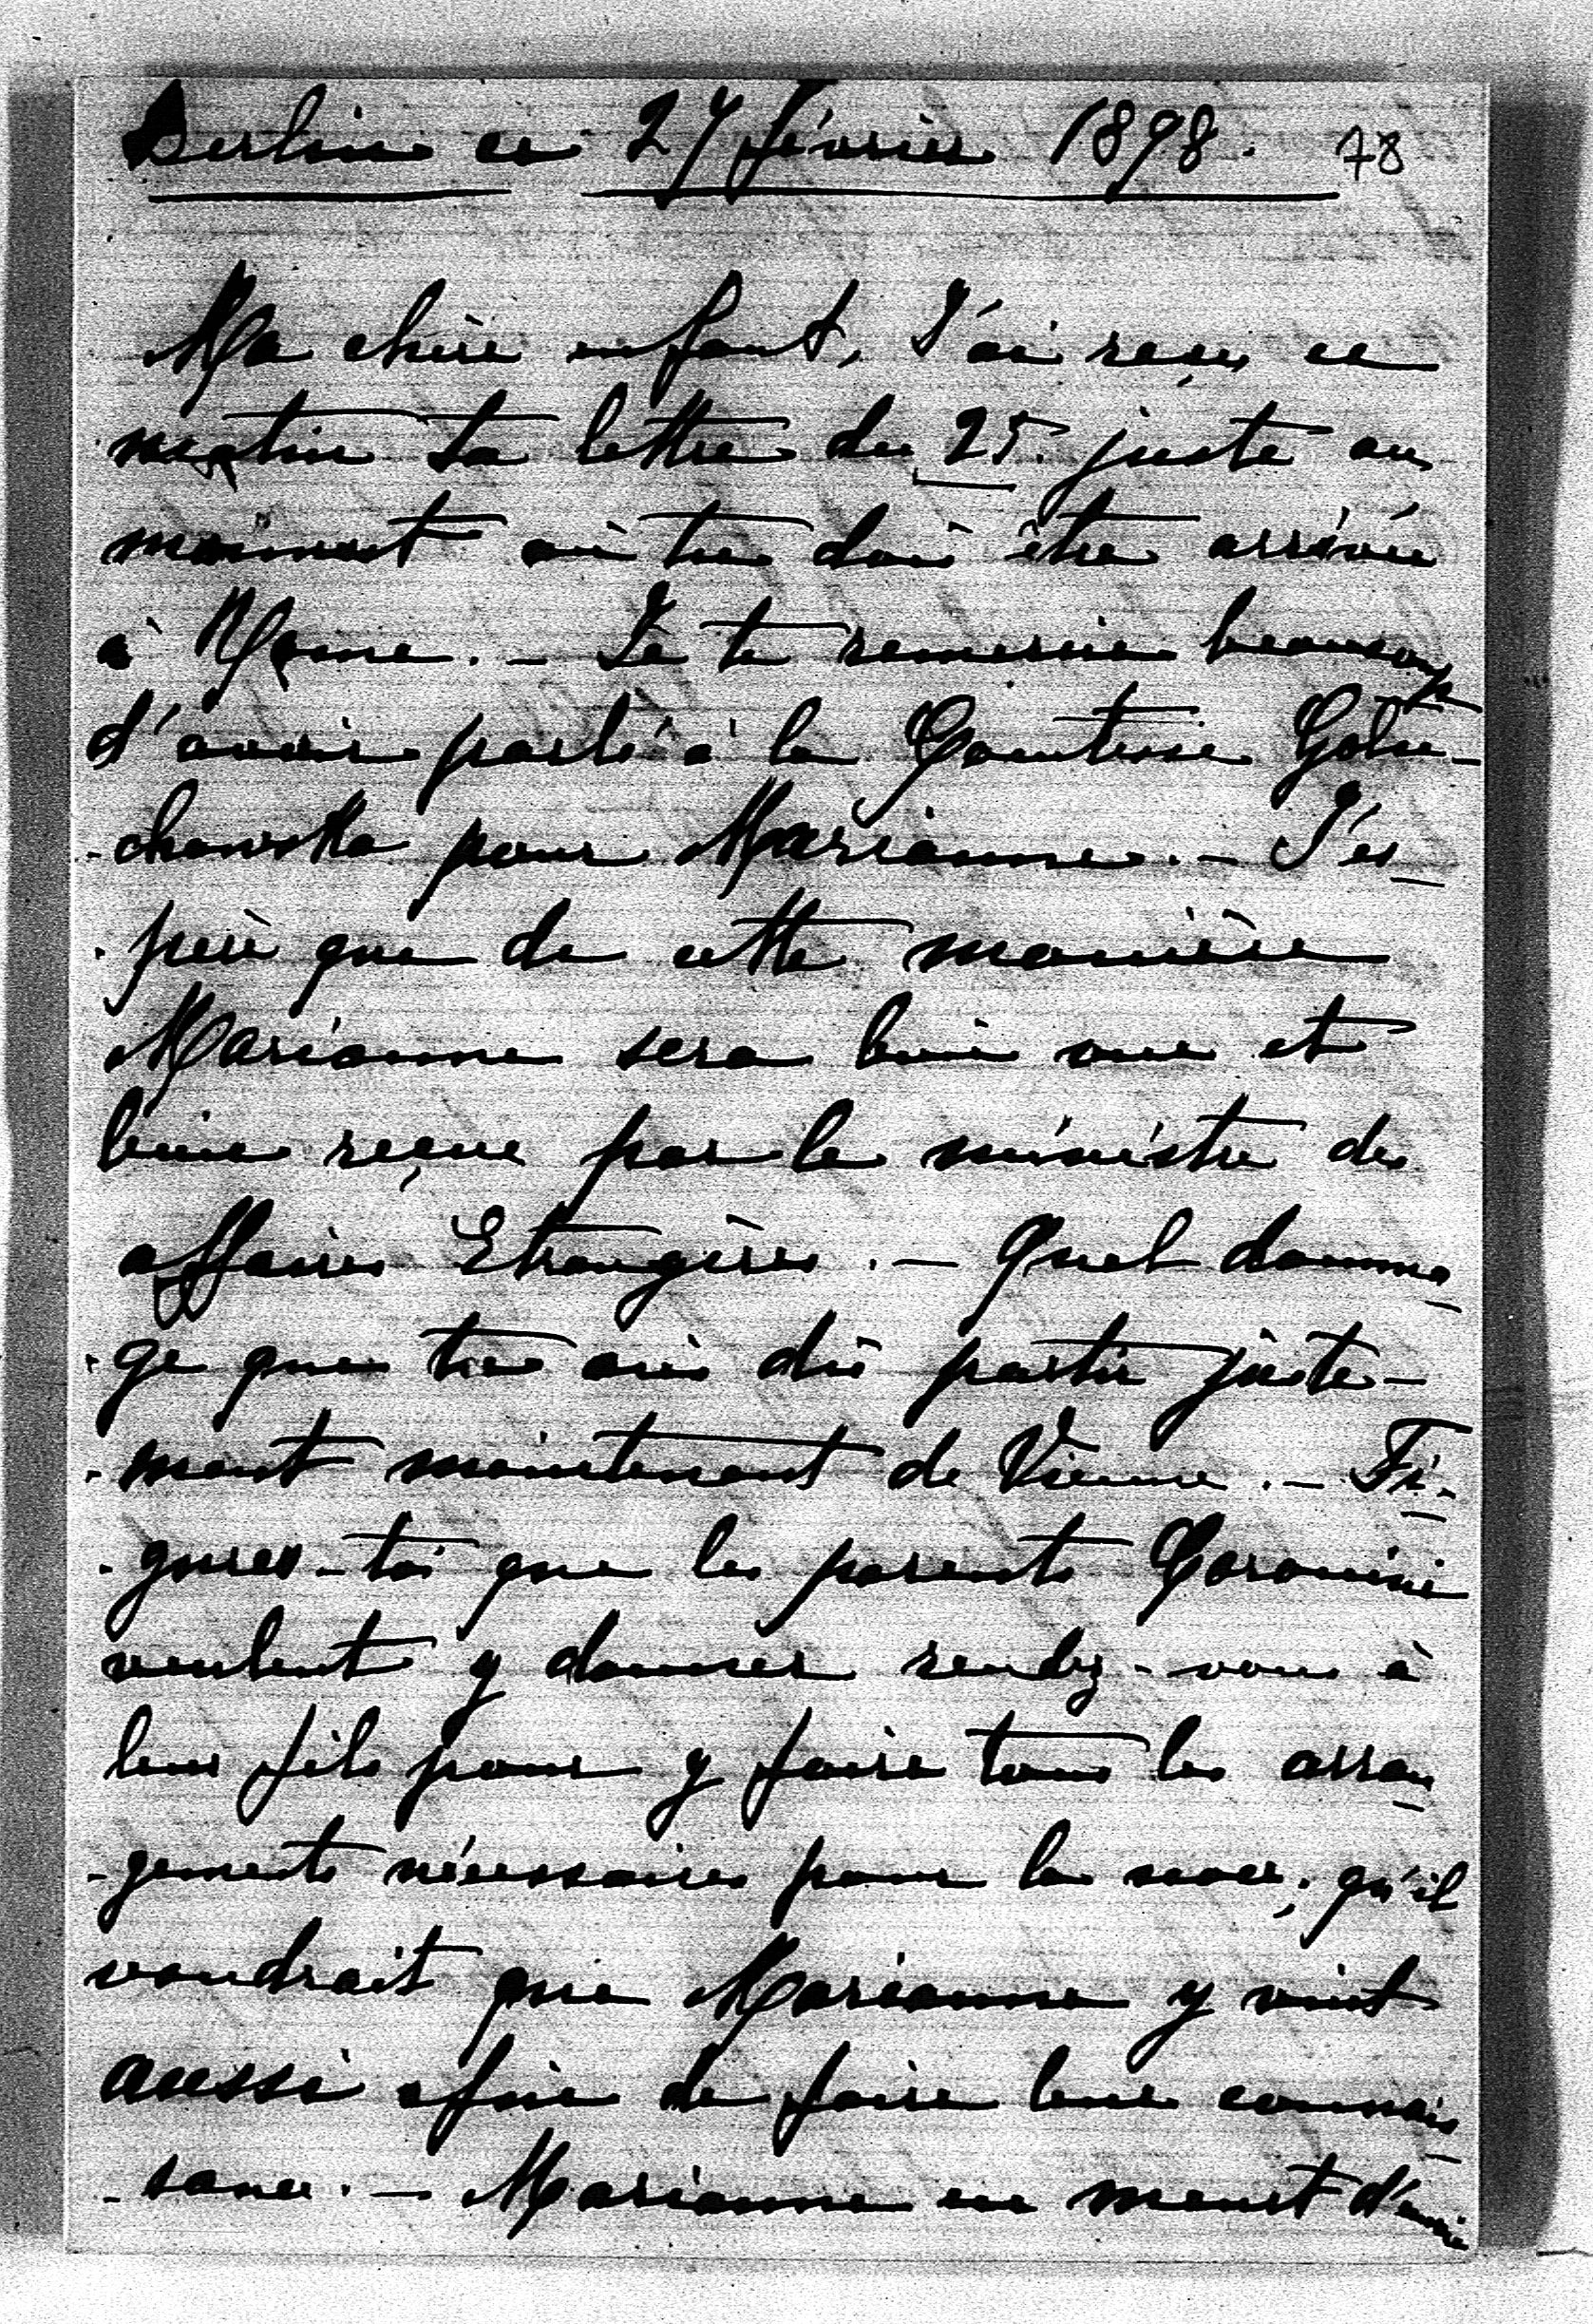 Berlin ce 27 février 1898. 78
Ma chère enfant, J'ai reçu ce
matin ta lettre du 25. juste au
moment où tu dois être arrivée
à Rome. - Je te remercie beaucoup
d'avoir parlé à la Comtesse Golu-
-chowska pour Marianne. - J'es-
-père que de cette manière
Marianne sera bien vue et
bien reçue par le ministre des
affaires Etrangères. - Quel domma-
-ge que tu aies dû partir juste-
-ment maintenant de Vienne. - Fi-
-gures-toi que les parents Coronini
veulent y donner rendez-vous à
leur fils pour y faire tous les arran-
-gements nécessaires pour la noce; qu'il
voudrait que Marianne y vint
aussi afin de faire leur connais-
-sance. - Marianne en meurt d'envie